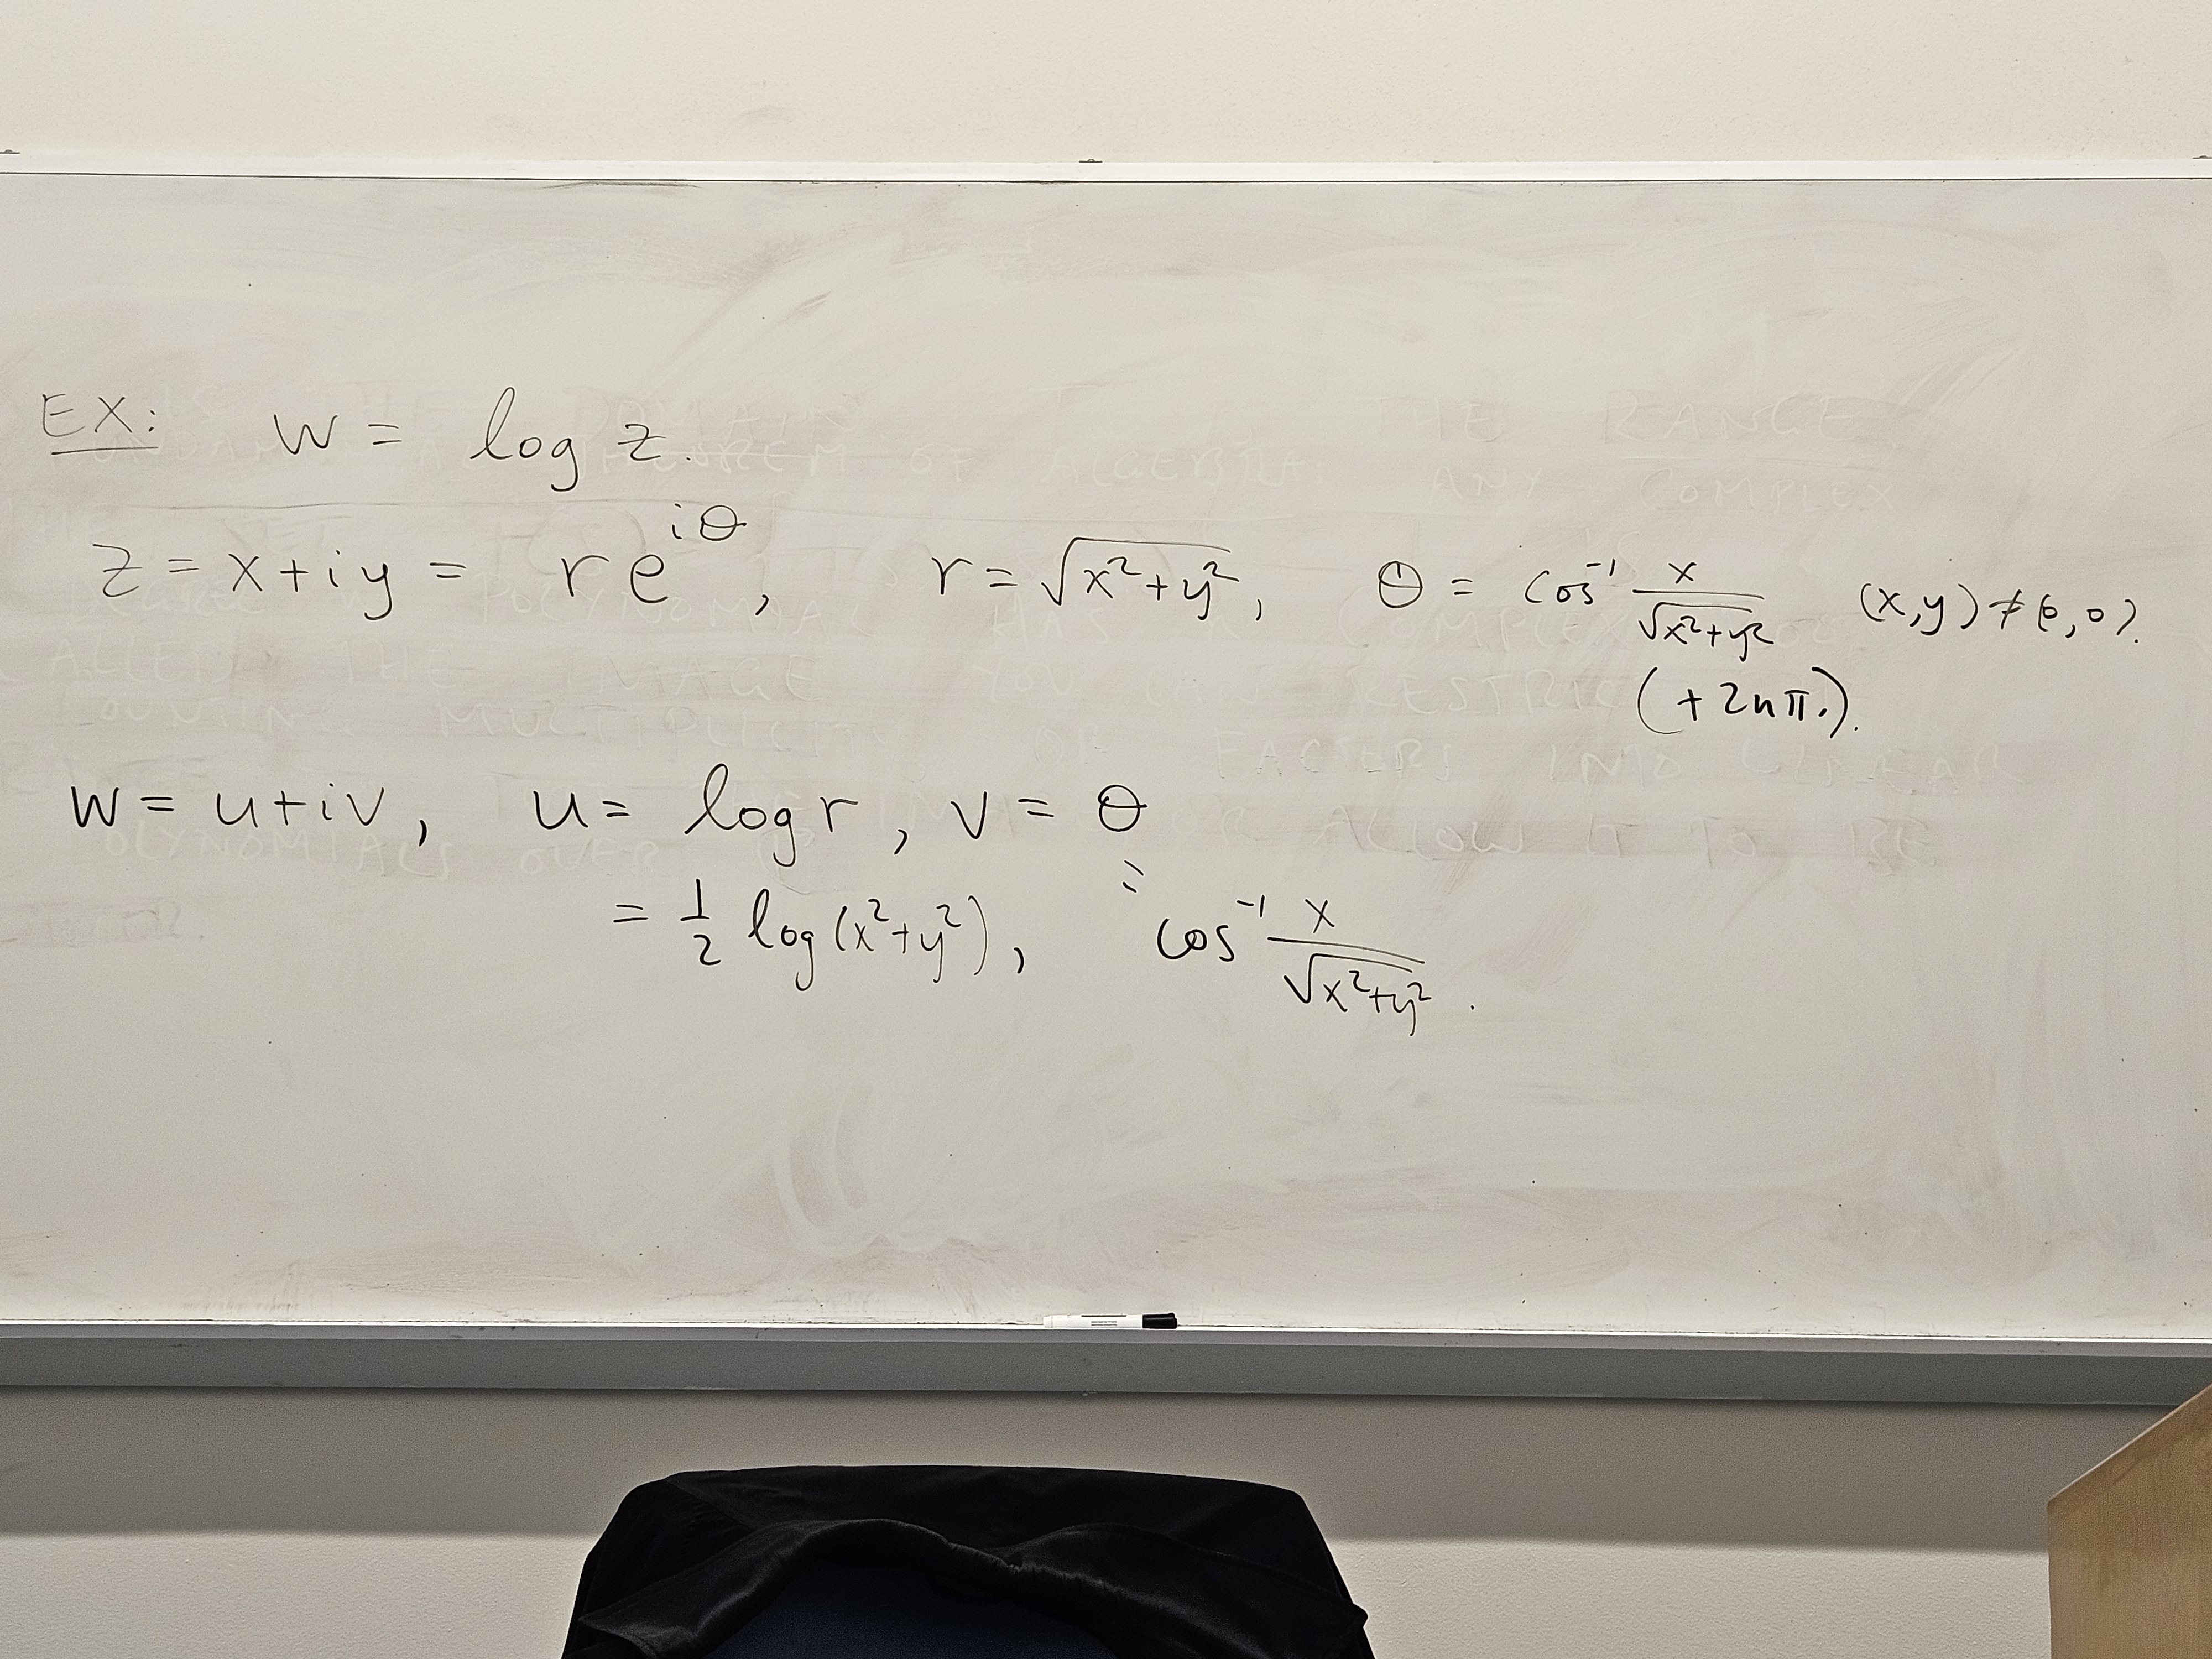 EX: w = log z.
z = x+iy = re^{iθ}, r = √(x²+y²), θ = cos⁻¹ x/√(x²+y²) (x,y) ≠ (0,0).
(+2nπ.).
w = u+iv, u = log r, v = θ
= 1/2 log(x²+y²), = cos⁻¹ x/√(x²+y²).